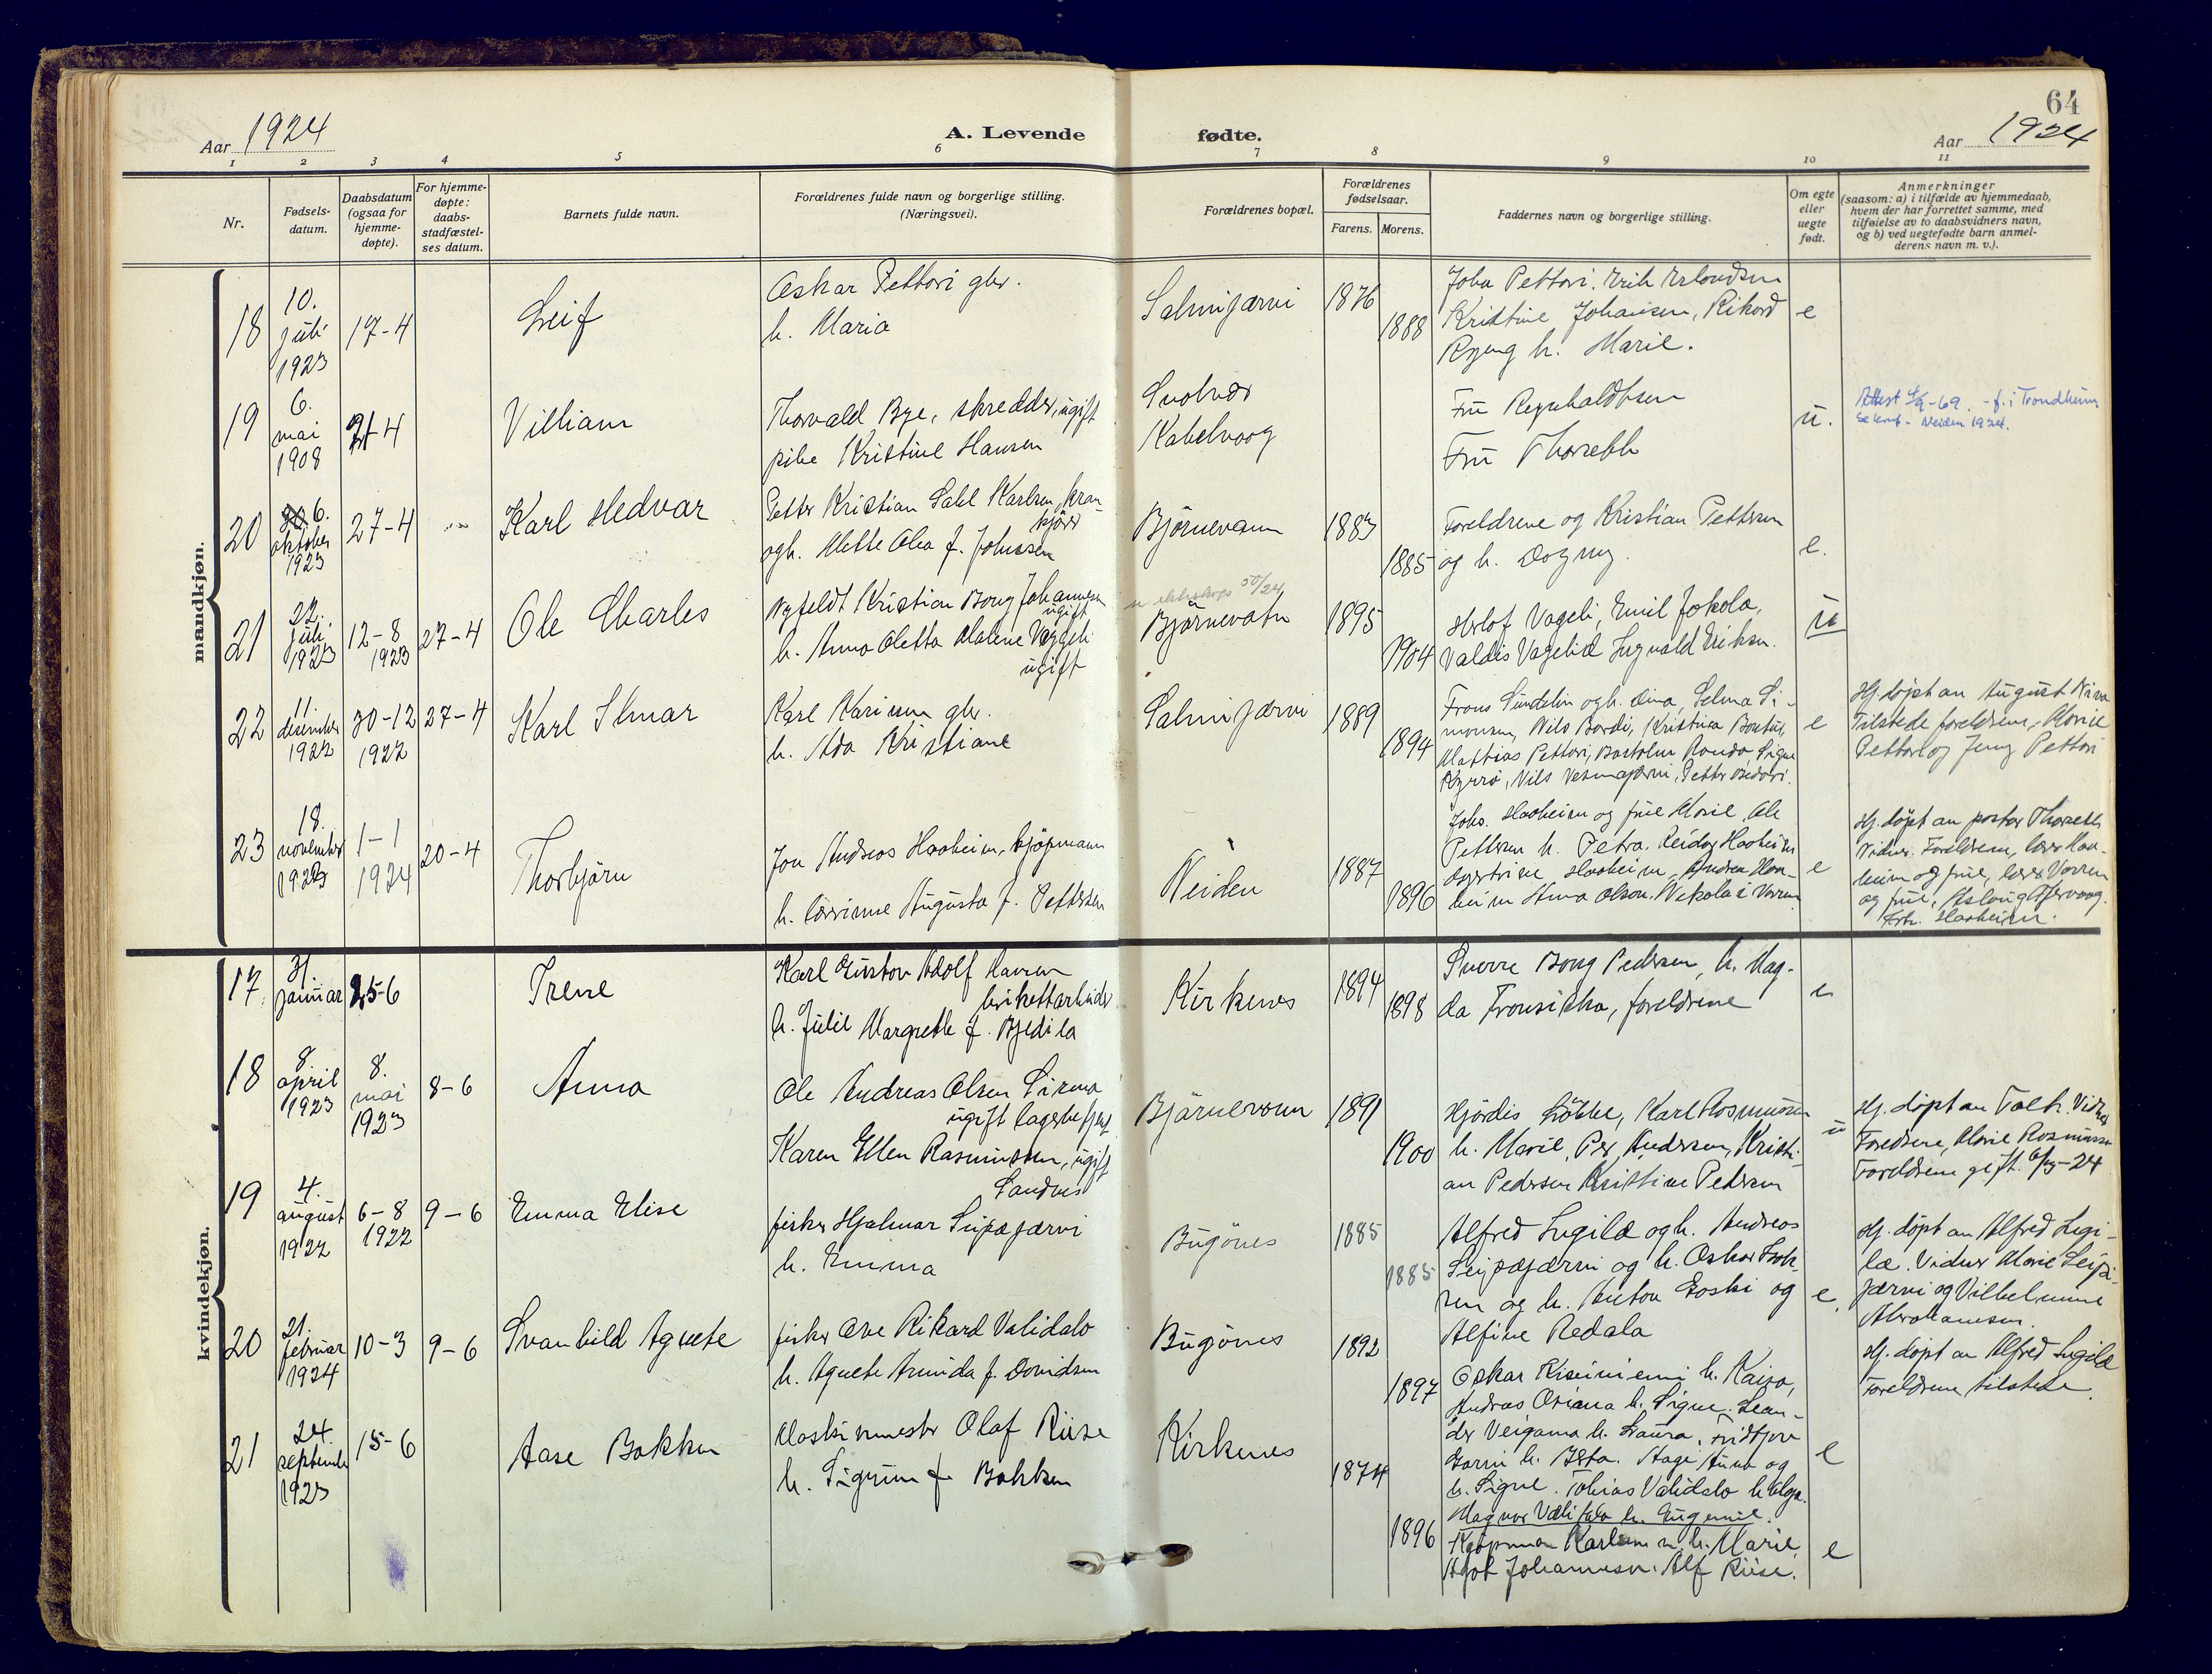 64
Aar 1924
A. Levende fødte.
Aar 1924
1 2 3 4 5 6 7 8 9 10 11
Nr.
Fødsels-
datum.
Daabsdatum
(ogsaa for
hjemme-
døpte).
For hjemme-
døpte:
daabs-
stadfæstel-
ses datum.
Barnets fulde navn.
Forældrenes fulde navn og borgerlige stilling.
(Næringsvei).
Forældrenes bopæl.
Forældrenes
fødselsaar.
Farens. Morens.
Faddernes navn og borgerlige stilling.
Om egte
eller
uegte
født.
Anmerkninger
(saasom: a) i tilfælde av hjemmedaab,
hvem der har forrettet samme, med
tilføielse av to daabsvidners navn,
og b) ved uegtefødte barn anmel-
derens navn m. v.).
mandkjøn.
18
10.
juli
1923
17-4
Leif
Oskar Pettori gbr.
h. Maria
Salmijærvi
1876
1888
John Pettori. Erik Erlandsen
Kristine Johansen, Rikard
h. Marie.
e
19
6.
mai
1908
21-4
Villiam
Thorvald Bye, skredder, ugift
pike Kristine Hansen
Svolvær
Kabelvaag
Fru
Fru Thorseth
u.
Attest - f. i Trondheim
Neiden 1924.
20
6.
oktober
1923
27-4
Karl Hedvar
Petter Kristian Karlsen, kran-
kjører
og h. Mette Olea f. Johnsen
Bjørnevann
1883
1885
Foreldrene og Kristian Pettersen
og h. Dagny.
e.
21
22.
juli
1923
12-8
1923
27-4
Ole Charles
Kristian Bong Johannesen
ugift
h. Anna Oletta Malene
ugift
Bjørnevatn
1895
1904
Herlof Vageli, Emil Jokola,
Ingvald Eriksen.
u
22
11.
desember
1922
30-12
1922
27-4
Karl Ilmar
Karl gbr.
h. Ada Kristiane
Salmijærvi
1889
1894
Frans Sundelin og h. Dina, Selma Si-
monsen, Nils Bordi, Kristina
Mathias Pettori, Signe
Nils Vesmajærvi, Petter
e
Hj. døpt av August
Tilstede foreldrene, Marie
Pettori og Jenny Pettori
23
18.
november
1923
1-1
1924
20-4
Thorbjørn
Jon Andreas Haaheim, kjøpmann
h. Augusta f. Pettersen
Neiden
1887
1896
Johs. Haaheim og frue Marie, Ole
Pettersen h. Petra. Reidar Haaheim
Haaheim, Andrea Haa-
heim Anna Olsen. Nikolai
e
Hj. døpt av pastor Thorseth
Vidner. Foreldrene, lærer Haa-
heim og frue, lærer
og frue, Aslaug
Haaheim.
kvindekjøn.
17
31.
januar
25-6
Irene
Karl Gustav Adolf Hansen
brikettarbeider
h. Julie Margrethe f. Bjedila
Kirkenes
1894
1898
Sverre Bong Pedersen, h. Mag-
da foreldrene
e
18
8.
april
1923
8.
mai
1923
8-6
Anna
Ole Andreas Olsen Sirma
ugift
Karen Ellen Rasmussen, ugift
Sandnes
Bjørnevann
1891
1900
Hjørdis Løkke, Karl Rasmussen
h. Marie, Per Andersen, Kristi-
an Pedersen Kristine Pedersen
u
Hj. døpt av Vidner
Foreldrene, Marie Rasmussen
Foreldrene gift.
19
4.
august
1922
6-8
1922
9-6
Emma Elise
fisker Hjalmar Seipæjærvi
h. Emma
Bugönes
1885
1885
Alfred Lugila og h. Andreas
Seipæjærvi og h. Oskar Isak-
sen og h. Anton og
Alfine Redala
e.
Hj. døpt av Alfred Lugi-
la. Vidner Marie Seipæ-
jærvi og Vilhelmine
Abrahamsen.
20
21.
februar
1924
10-3
9-6
Svanhild Agnete
fisker Ove Rikard Validalo
h. Agnete Arnida f. Davidsen
Bugönes
1892
1897
Oskar Kiseiniemi h. Kaisa,
Andreas h. Signe. Lean-
der h. Laura. Fridtjov
h. Berta. Aage og
h. Signe. Tobias Validalo h. Olga.
Magnar h. Eugenie.
e
Hj. døpt av Alfred Lugila
Foreldrene tilstede.
21
24.
september
1923
15-6
Aase Bakken
Maskinmester Olaf Riise
h. Sigrun f. Bakken
Kirkenes
1874
1896
Kjøpmann Karlsen h. Marie,
Johannesen. Alf Riise.
e